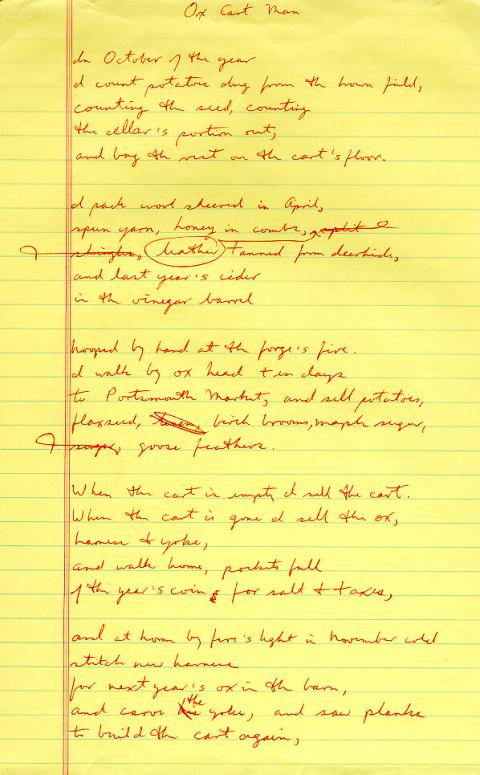 Ox Cart Man
In October of the year
I count potatoes dug from the brown field,
counting the seed, counting
the cellar's portion out,
and bag the rest on the cart's floor.
I pack wool sheered in April,
spun yarn, honey in combs, split
shingles, leather tanned from deerhide,
and last year's cider
in the vinegar barrel
hooped by hand at the forge's fire.
I walk by ox head ten days
to Portsmouth Market, and sell potatoes,
flaxseed, birch brooms, maple sugar,
sugar, goose feathers.
When the cart is empty I sell the cart.
When the cart is gone I sell the ox,
harness & yoke,
and walk home, pockets full
of the year's coin for salt & taxes,
and at home by fire's light in November cold
stitch new harness
for next year's ox in the barn,
and carve his the yoke, and saw planks
to build the cart again,